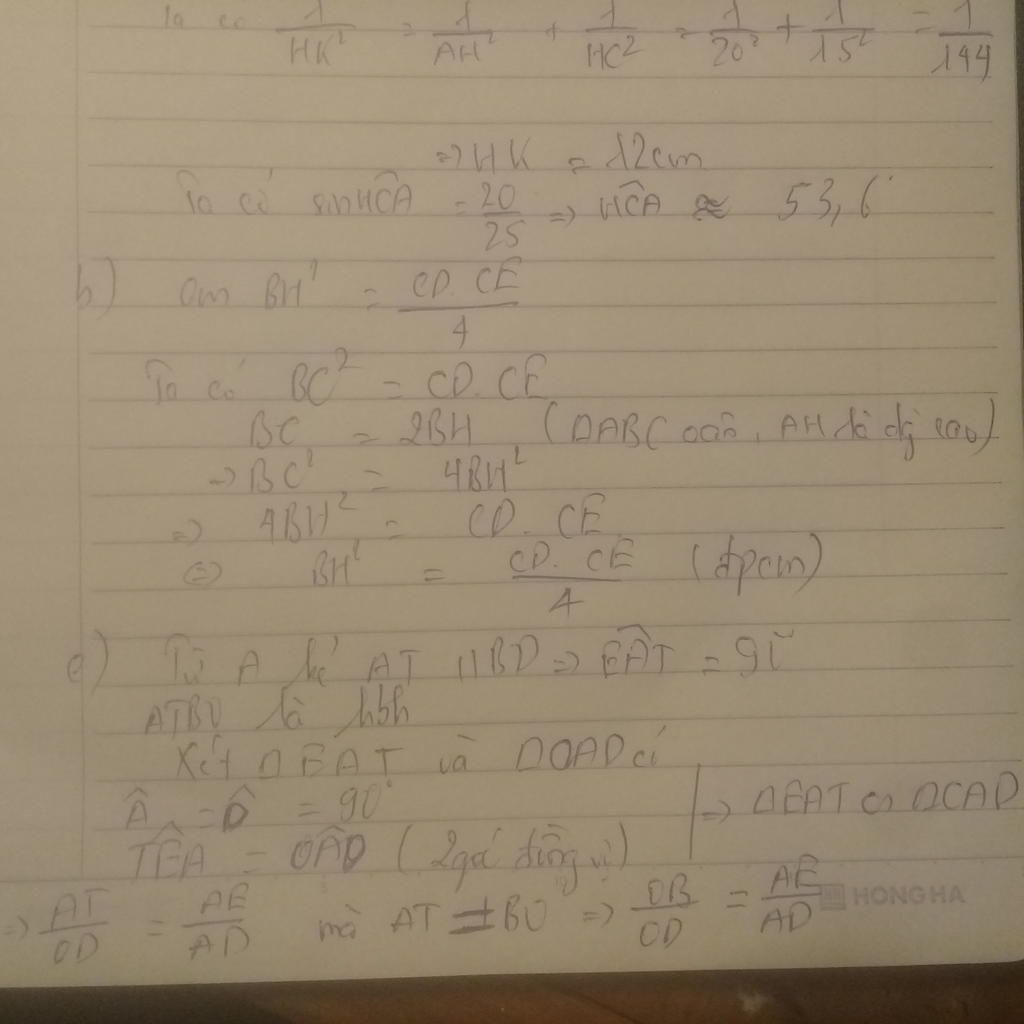 Ta có 1/HK² = 1/AH² + 1/HC² = 1/20² + 1/15² = 1/144
=> HK = 12cm
Ta có sinHĈA = 20/25 => HĈA ≈ 53,6°
b) cm BH² = CD.CE/4
Ta có BC² = CD.CE
BC = 2BH (ΔABC cân, AH là đg cao)
=> BC² = 4BH²
=> 4BH² = CD.CE
<=> BH² = CD.CE/4 (đpcm)
c) Từ A kẻ AT // BD => EÂT = 90°
ATBO là hbh
Xét ΔEAT và ΔOAD có
Â = D̂ = 90°
TÊA = OÂD (2 góc đồng vị)
=> ΔEAT ∽ ΔOAD
=> AT/OD = AE/AD mà AT = BO => OB/OD = AE/AD
HONG HA